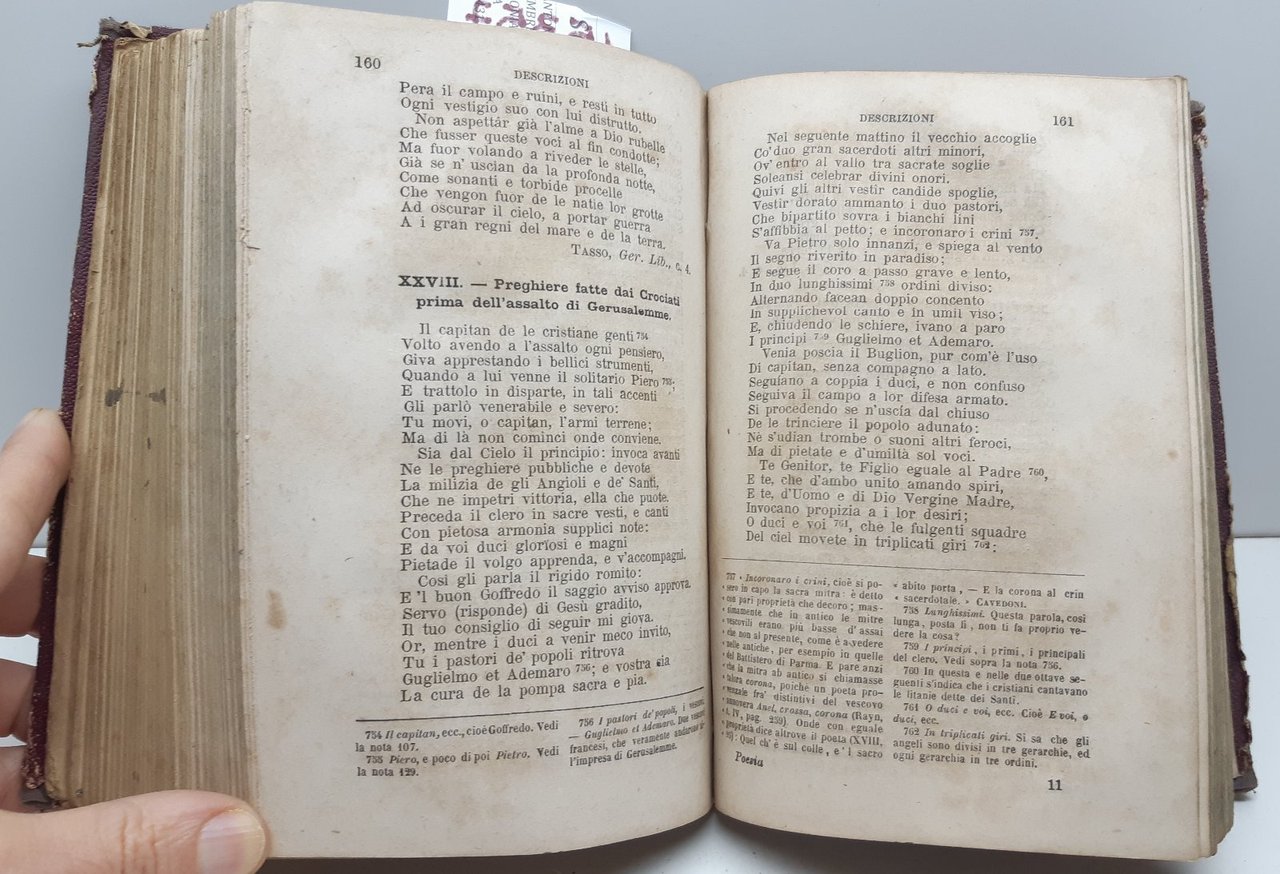 160
DESCRIZIONI
Pera il campo e ruini, e resti in tutto
Ogni vestigio suo con lui distrutto.
Non aspettâr già l'alme a Dio rubelle
Che fusser queste voci al fin condotte;
Ma fuor volando a riveder le stelle,
Già se n' uscìan da la profonda notte,
Come sonanti e torbide procelle
Che vengon fuor de le natie lor grotte
Ad oscurar il cielo, a portar guerra
A i gran regni del mare e de la terra.
TASSO, Ger. Lib., c. 4.
XXVIII. — Preghiere fatte dai Crociati
prima dell'assalto di Gerusalemme.
Il capitan de le cristiane genti 754
Volto avendo a l'assalto ogni pensiero,
Giva apprestando i bellici strumenti,
Quando a lui venne il solitario Piero 755;
E trattolo in disparte, in tali accenti
Gli parlò venerabile e severo:
Tu movi, o capitan, l'armi terrene;
Ma di là non cominci onde conviene.
Sia dal Cielo il principio: invoca avanti
Ne le preghiere pubbliche e devote
La milizia de gli Angioli e de' Santi,
Che ne impetri vittoria, ella che puote.
Preceda il clero in sacre vesti, e canti
Con pietosa armonia supplici note:
E da voi duci gloriosi e magni
Pietade il volgo apprenda, e v'accompagni.
Così gli parla il rigido romito:
E 'l buon Goffredo il saggio avviso approva.
Servo (risponde) di Gesù gradito,
Il tuo consiglio di seguir mi giova.
Or, mentre i duci a venir meco invito,
Tu i pastori de' popoli ritrova
Guglielmo et Ademaro 756; e vostra sia
La cura de la pompa sacra e pia.
754 Il capitan, ecc., cioè Goffredo. Vedi
la nota 107.
755 Piero, e poco di poi Pietro. Vedi
la nota 129.
756 I pastori de' popoli, i vescovi.
— Guglielmo et Ademaro. Due vescovi
francesi, che veramente andarono
l'impresa di Gerusalemme.
DESCRIZIONI
161
Nel seguente mattino il vecchio accoglie
Co' duo gran sacerdoti altri minori,
Ov' entro al vallo tra sacrate soglie
Soleansi celebrar divini onori.
Quivi gli altri vestir candide spoglie,
Vestir dorato ammanto i duo pastori,
Che bipartito sovra i bianchi lini
S'affibbia al petto; e incoronaro i crini 757.
Va Pietro solo innanzi, e spiega al vento
Il segno riverito in paradiso:
E segue il coro a passo grave e lento,
In duo lunghissimi 758 ordini diviso:
Alternando facean doppio concento
In supplichevol canto e in umil viso;
E, chiudendo le schiere, ivano a paro
I principi 759 Guglielmo et Ademaro.
Venia poscia il Buglion, pur com'è l'uso
Di capitan, senza compagno a lato.
Seguiano a coppia i duci, e non confuso
Seguiva il campo a lor difesa armato.
Si procedendo se n'uscìa dal chiuso
De le trinciere il popolo adunato:
Né s'udìan trombe o suoni altri feroci,
Ma di pietate e d'umiltà sol voci.
Te Genitor, te Figlio eguale al Padre 760,
E te, che d'ambo unito amando spiri,
E te, d'Uomo e di Dio Vergine Madre,
Invocano propizia a i lor desiri;
O duci e voi 761, che le fulgenti squadre
Del ciel movete in triplicati giri 762;
757 « Incoronaro i crini, cioè si po-
« sero in capo la sacra mitra: è detto
« con pari proprietà che decoro; mas-
« timamente che in antico le mitre
« vescovili erano più basse d' assai
« che non al presente, come è a vedere
« nelle antiche, per esempio in quelle
« del Battistero di Parma. E pare anzi
« che la mitra ab antico si chiamasse
« talora corona, poichè un poeta pro-
« venzale fra' distintivi del vescovo
« annovera Anel, crossa, corona (Rayn,
« t. IV, pag. 259). Onde con eguale
« proprietà dice altrove il poeta (XVIII,
« 95): Quel ch' è sul colle, e 'l sacro
« abito porta, — E la corona al crin
« sacerdotale. » CAVEDONI.
758 Lunghissimi. Questa parola, così
lunga, posta lì, non ti fa proprio ve-
dere la cosa?
759 I principi, i primi, i principali
del clero. Vedi sopra la nota 756.
760 In questa e nelle due ottave se-
guenti s'indica che i cristiani cantavano
le litanie dette dei Santi.
761 O duci e voi, ecc. Cioè E voi, o
duci, ecc.
762 In triplicati giri. Si sa che gli
angeli sono divisi in tre gerarchie, ed
ogni gerarchia in tre ordini.
Poesia
11